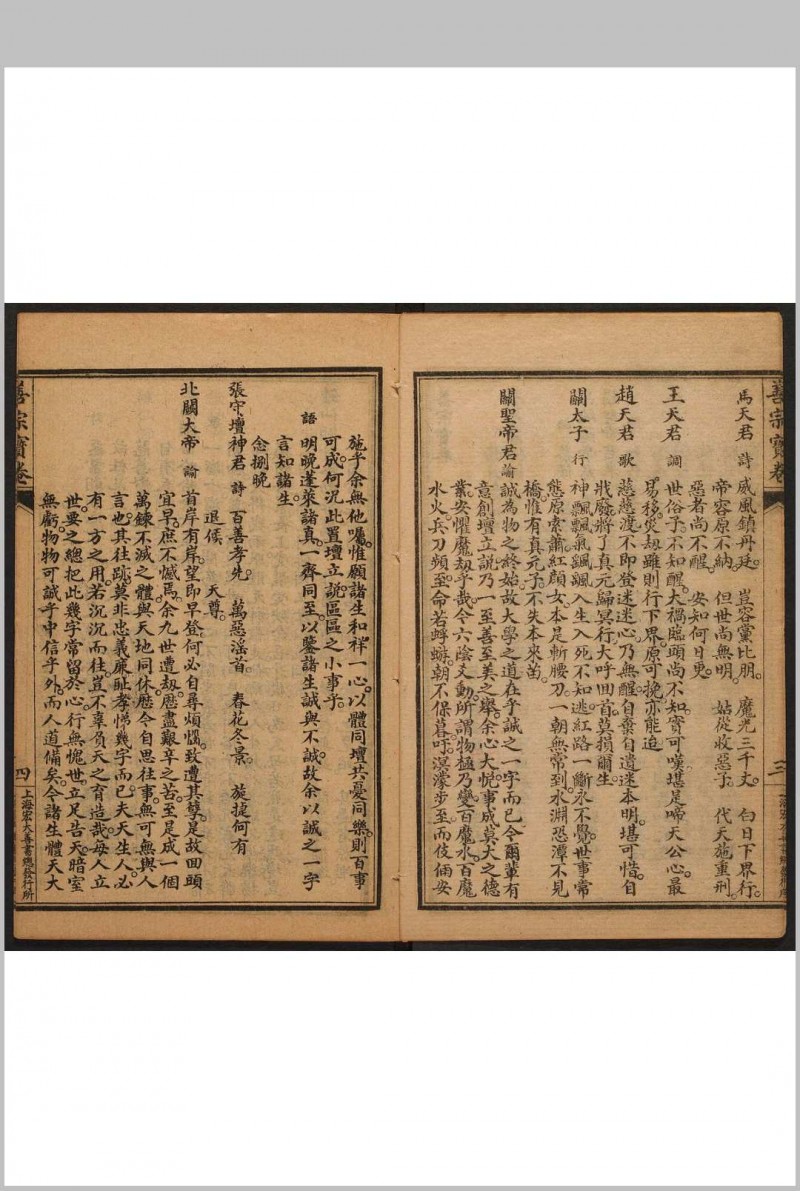 善宗寶卷
三
馬天君　詩　威風鎮丹廷。　豈容黨比朋。　魔光三千丈。　白日下界行。
帝容原不納。　但世尚無明。　姑從收惡子。　代天施重刑。
惡者尚不醒。　安知何日更。
王天君　調　世俗子。不知醒。大禍臨頭尚不知。實可嘆堪是啼天公心。最
易移。災劫雖則行下界。原可挽亦能迫
趙天君　歌　慈慈渡不即登迷迷心乃無醒。自棄自遺迷本明。堪可惜。自
戕廢。將了真元歸冥行大呼回首莫損爾生
關太子　行　神飄飄氣飄飄入生入死不知逃紅路一斷永不覺。世事常
態原素蕭。紅顏女本是斬腰刀。一朝無常到。水淵恐潭不見
橋。惟有真元子。不失本來苗。
關聖帝君諭　誠為物之終始。故大學之道。在乎誠之一字而已。今爾輩有
意創壇立説。乃一至善至美之舉。余心大悅。事成莫大之德
業。安懼魔劫乎哉。令六陰爻動。所謂物極乃變。百魔水。百魔
水火兵刀頻至。命若蜉蝣。朝不保暮。吁。溟濛步至。而伎倆安
施乎。余無他囑。惟願諸生和祥一心。以體同壇共憂同樂。則百事
可成。何況此置壇立説。區區之小事乎。
語　明晚蓬萊諸真。一齊同至。以鑒諸生誠與不誠。故余以誠之一字
言知諸生
念捌晚
張守壇神君　詩　百善孝先。　萬惡淫首。　春花冬景。　旋捷何有
退候。　天尊。
北闕大帝　諭　首岸有岸。望即早登。何必自尋煩惱。致遭其孽。是故回頭
宜早。庶不憾焉。余九世遭劫。歷盡艱辛之苦。至是成一個
萬鍊不滅之體。與天地同休。歷今自思往事。無可無與人
言也。其往跡。莫非忠義廉耻孝悌幾字而已。夫天生人。必
有一方之用。若沉沉而往。豈不辜負天之育造哉。毎人立
世。要之總把此幾字常留於心。行無愧世。立足告天。暗室
無虧。物物可誠乎中信乎外。而人道備矣。今諸生體天大
善宗寶卷
四
上海宏大善書總發行所